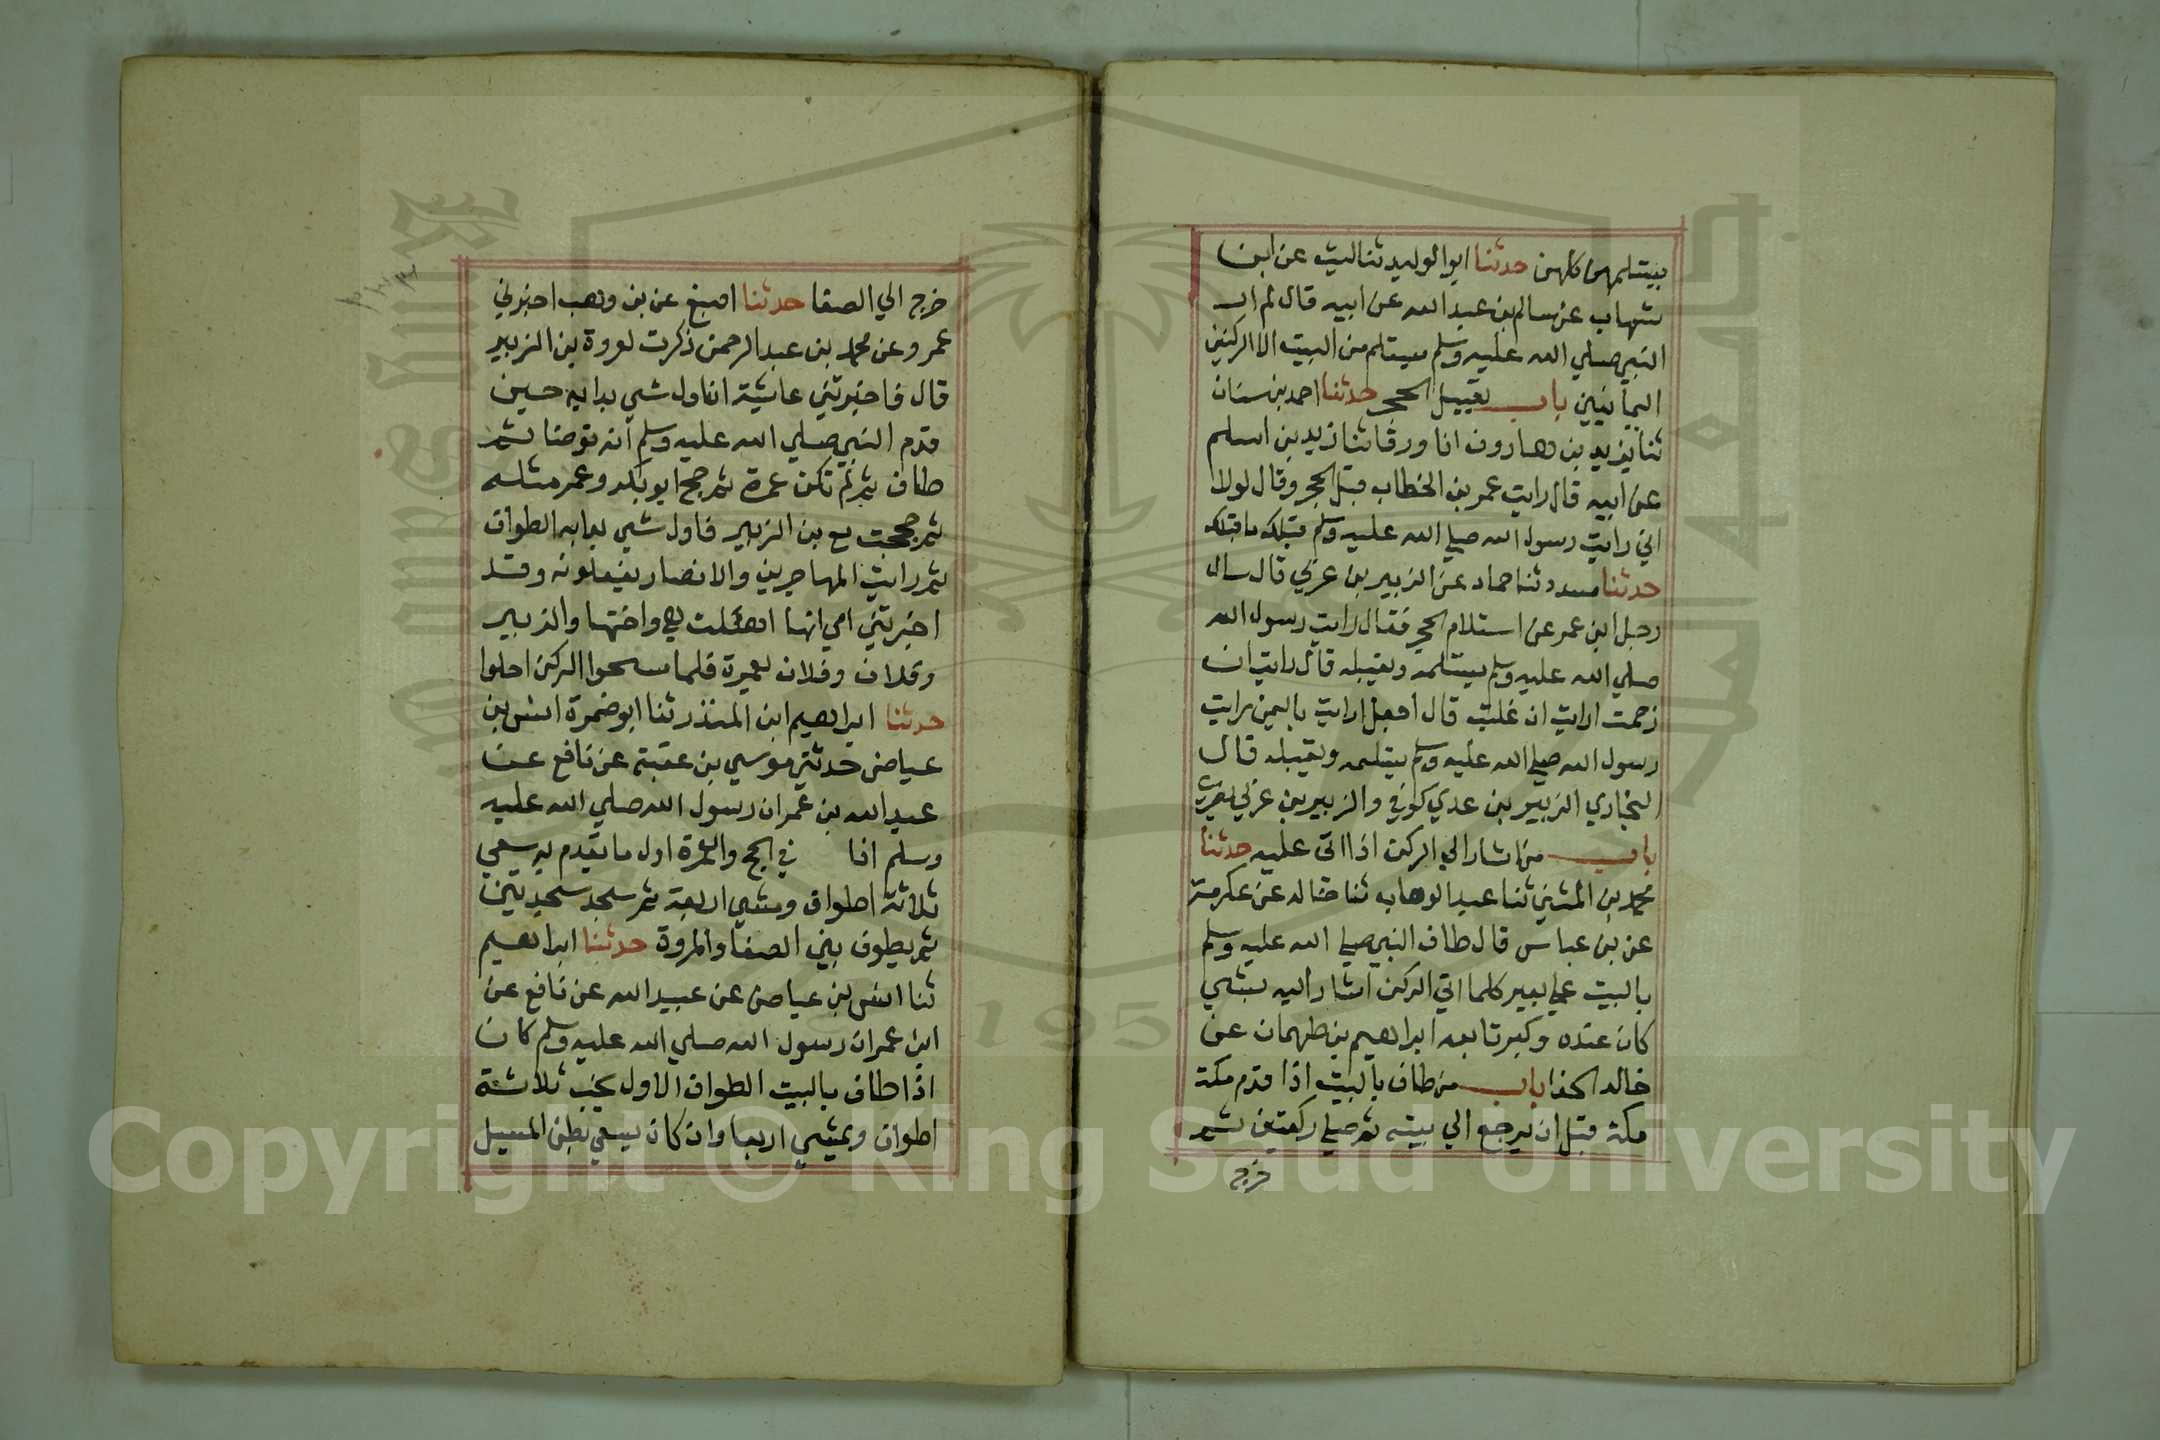 يستلمهن كلهن حدثنا ابوالوليد ثنا ليث عن ابن
شهاب عن سالم بن عبد الله عن ابيه قال لم ار
النبي صلي الله عليه وسلم يستلم من البيت الا الركنين
اليمانيين باب تقبيل الحجر حدثنا احمد بن سنان
ثنا يزيد بن هارون انا ورقا ثنا زيد بن اسلم
عن ابيه قال رايت عمر بن الخطاب قبل الحجر وقال لولا
اني رايت رسول الله صلي الله عليه وسلم قبلك ما قبلتك
حدثنا مسدد ثنا حماد عن الزبير بن عربي قال سال
رجل ابن عمر عن استلام الحجر فقال رايت رسول الله
صلي الله عليه وسلم يستلمه ويقبله قال رايت ان
زحمت ارايت ان غلبت قال اجعل ارايت باليمن رايت
رسول الله صلي الله عليه وسلم يستلمه ويقبله قال
البخاري الزبير بن عدي كوفي والزبير بن عربي بصري
باب من اشار الي الركن اذا اتى عليه حدثنا
محمد بن المثني ثنا عبد الوهاب ثنا خالد عن عكرمة
عن بن عباس قال طاف النبي صلي الله عليه وسلم
بالبيت علي بعير كلما اتي الركن اشار اليه بشي
كان عنده وكبر تابعه ابراهيم بن طهمان عن
خالد الحذا باب من طاف بالبيت اذا قدم مكة
مكة قبل ان يرجع الي بيته ثم صلي ركعتين ثم
خرج
خرج الي الصفا حدثنا اصبغ عن بن وهب اخبرني
عمرو عن محمد بن عبد الرحمن ذكرت لعروة بن الزبير
قال فاخبرتني عائشة ان اول شي بدا به حين
قدم النبي صلي الله عليه وسلم أنه توضا ثم
طاف ثم لم تكن عمرة ثم حج ابو بكر وعمر مثله
ثم حججت مع بن الزبير فاول شي بدا به الطواف
ثم رايت المهاجرين والانصار يفعلونه وقد
اخبرتني امي انها اهلت هي واختها والزبير
وفلان وفلان بعمرة فلما مسحوا الركن احلوا
حدثنا ابراهيم ابن المنذر ثنا ابو ضمرة انس بن
عياض حدثني موسي بن عقبة عن نافع عن
عبد الله بن عمر ان رسول الله صلي الله عليه
وسلم اذا في الحج والعمرة اول ما يقدم يسعي
ثلاثة اطواف ومشي اربعة ثم سجد سجدتين
ثم يطوف بين الصفا والمروة حدثنا ابراهيم
ثنا انس بن عياض عن عبيد الله عن نافع عن
ابن عمر ان رسول الله صلي الله عليه وسلم كان
اذا طاف بالبيت الطواف الاول يخب ثلاثة
اطواف ويمشي اربعا وان كان يسعي بطن المسيل
Copyright © King Saud University
1957